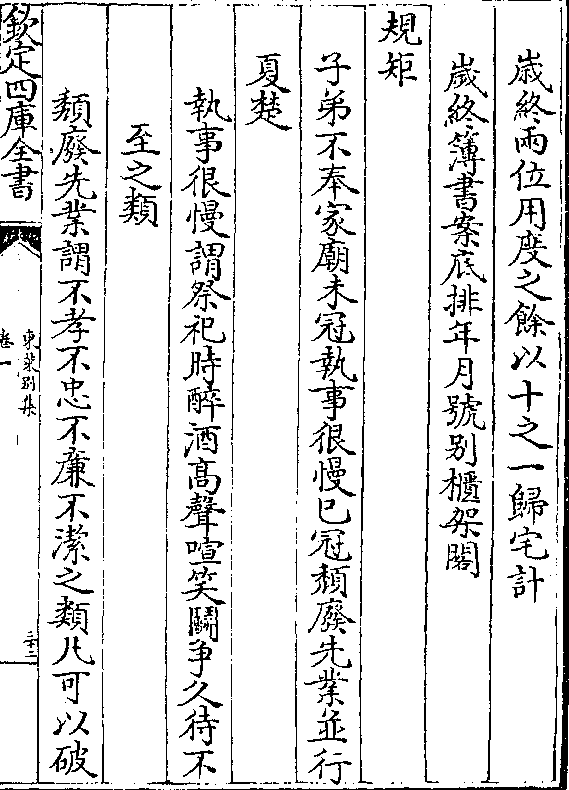 歲終兩位用度之餘以十之一歸宅計
歲終簿書案底排年月號别櫃架閣
規矩
子弟不奉家廟未冠執事很慢已冠頽廢先業並行
夏楚
執事很慢謂祭祀時醉酒高聲喧笑鬭争久待不
至之類
頽廢先業謂不孝不忠不廉不潔之類凡可以破
欽定四庫全書
東萊别集
卷一
三十二